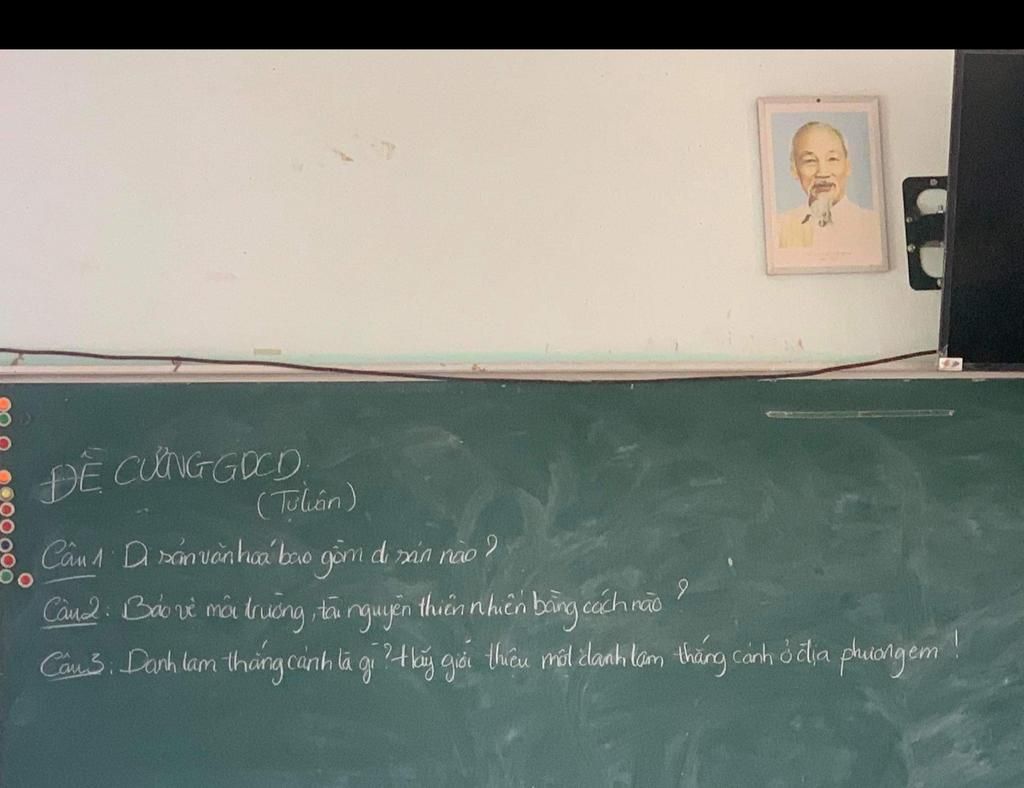 ĐỀ CƯƠNG GDCD
(Tự luận)
Câu 1: Di sản văn hoá bao gồm di sản nào?
Câu 2: Bảo vệ môi trường, tài nguyên thiên nhiên bằng cách nào?
Câu 3: Danh lam thắng cảnh là gì? Hãy giới thiệu một danh lam thắng cảnh ở địa phương em!